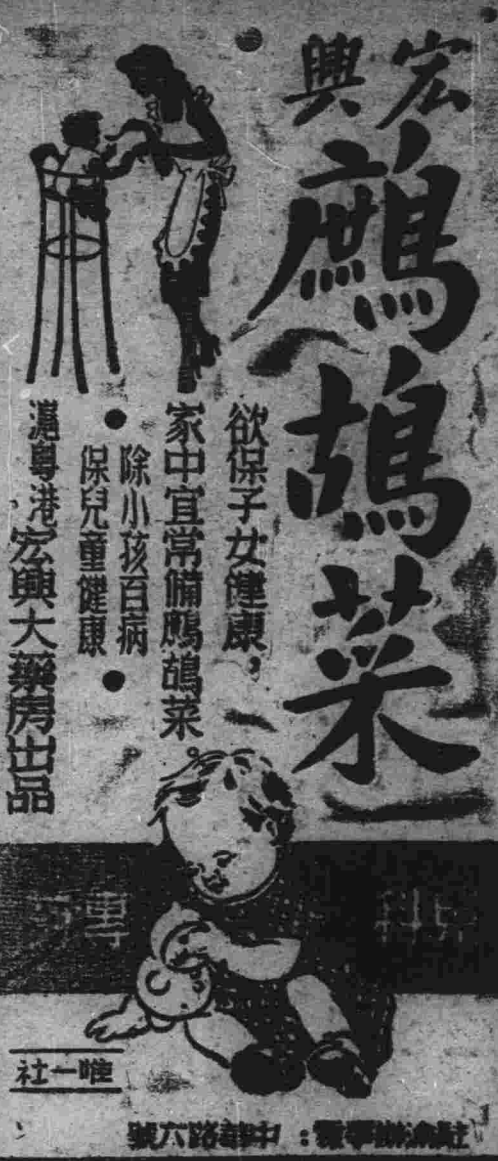 宏興
鷓鴣菜
欲保子女健康，
家中宜常備鷓鴣菜
除小孩百病
保兒童健康
滬粵港宏興大藥房出品
唯一社
中華路六號